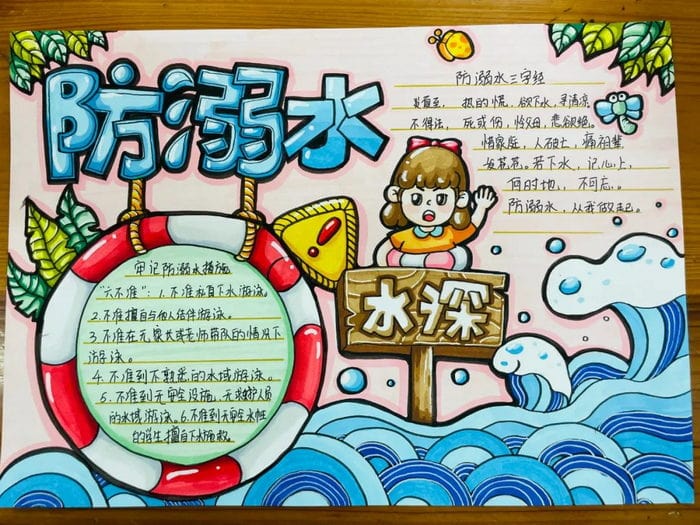 防溺水
防溺水三字经
夏直至，热的慌，欲下水，寻清凉
不得法，死或伤，怜父母，悲欲绝。
惜家庭，人破亡，痛祖辈
发花花。若下水，记心上，
何时地，不可忘。
防溺水，从我做起。
水深
牢记防溺水措施
"六不准"：1.不准私自下水游泳。
2.不准擅自与他人结伴游泳。
3.不准在无家长或老师带队的情况下
游泳。
4.不准到不熟悉的水域游泳。
5.不准到无安全设施、无救护人员
的水域游泳。6.不准到无安全水性
的学生擅自下水施救。